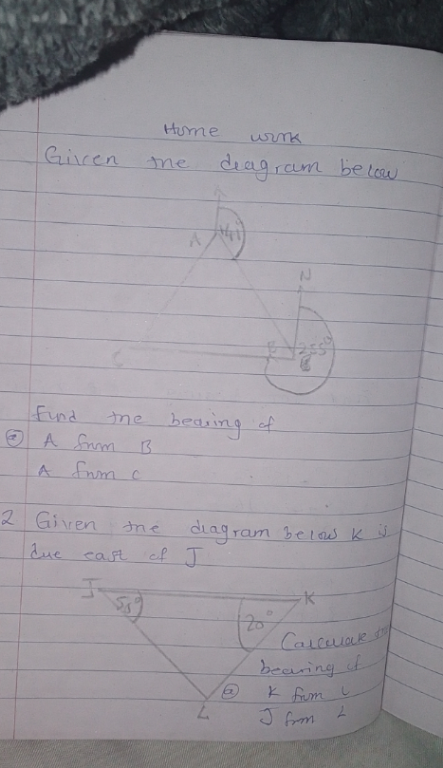 Home work
Given the diagram below
A
N
B
C
Find the bearing of
a A from B
A from C
2 Given the diagram below K is
due east of J
J
55°
20°
K
Calculate
bearing of
L
a K from L
J from L